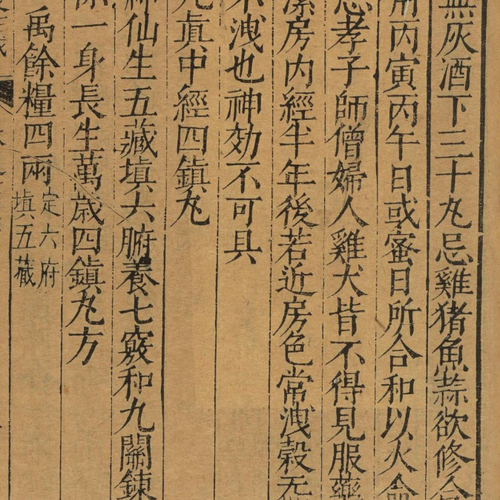 無灰酒下三十丸忌雞猪魚蒜欲修合
用丙寅丙午日或蜜日所合和以火
忌孝子師僧婦人雞犬皆不得見服藥
潔房内經半年後若近房色常洩穀无
不洩也神効不可具
九眞中經四鎮丸
神仙生五藏填六腑養七竅和九關鍊
一身長生萬歲四鎮丸方
禹餘糧四兩定六府填五藏